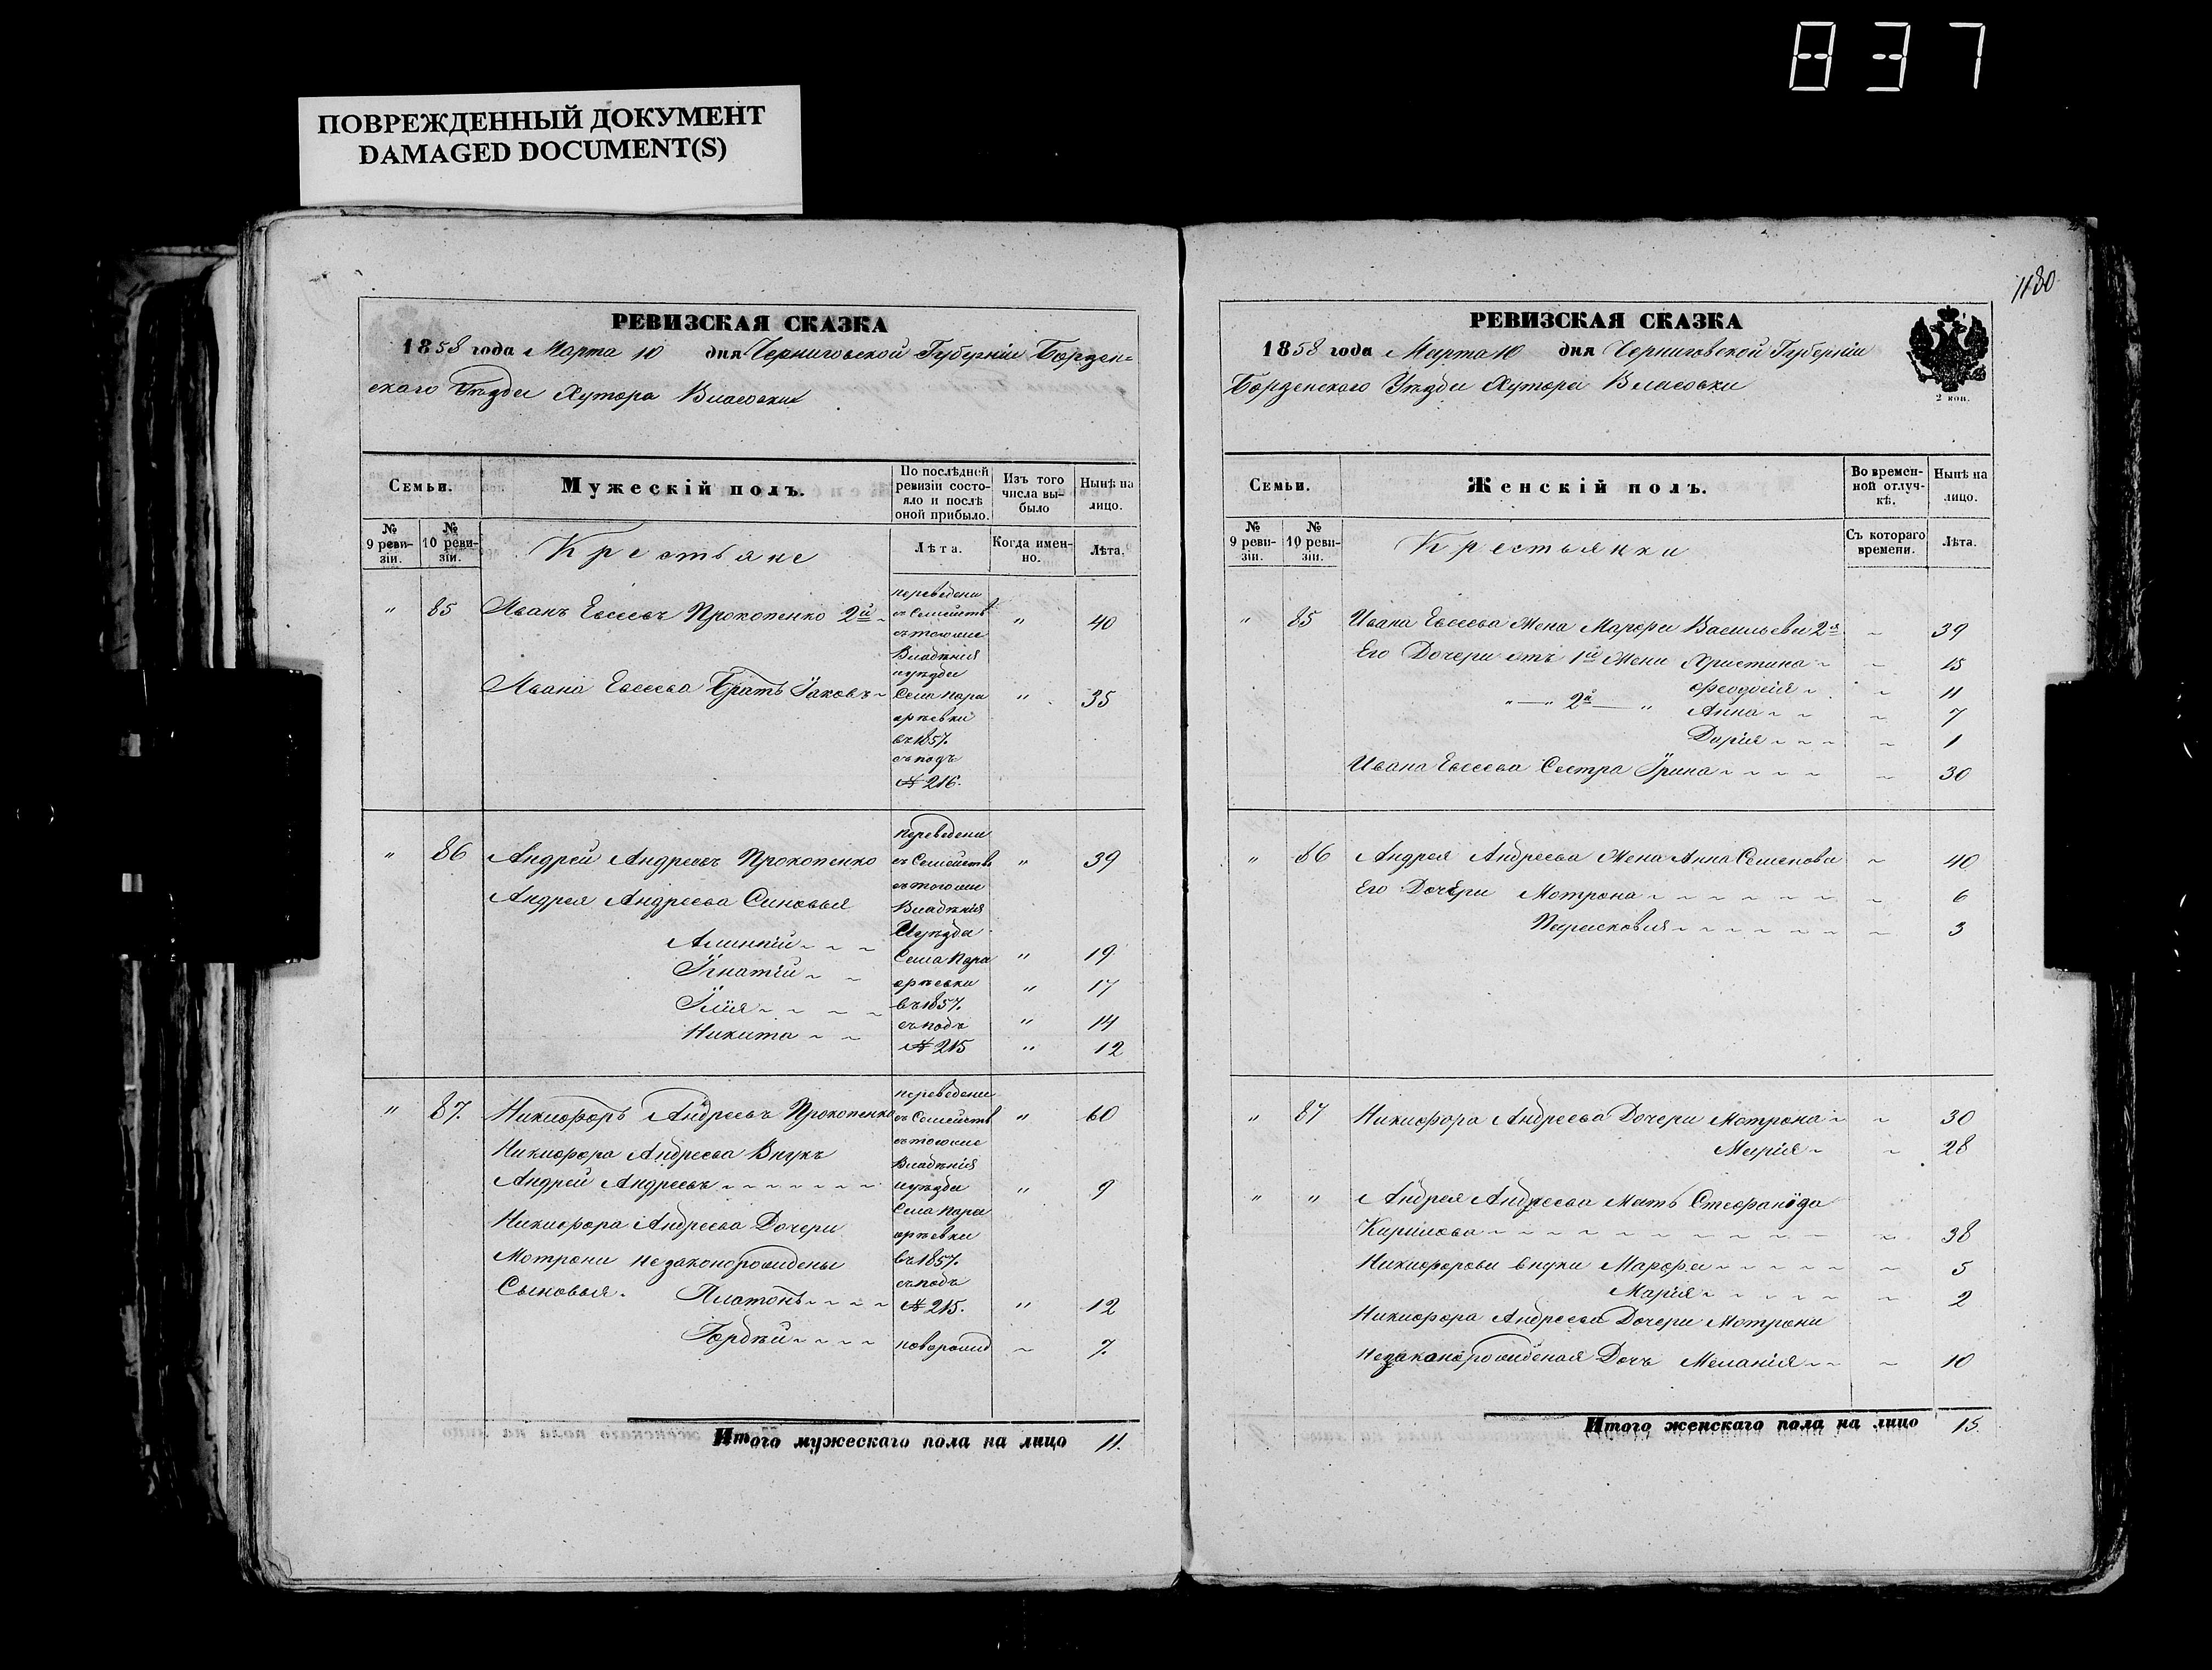 837
ПОВРЕЖДЕННЫЙ ДОКУМЕНТ
DAMAGED DOCUMENT(S)
РЕВИЗСКАЯ СКАЗКА
1858 года Марта 10 дня Черниговской Губерніи Борзен=
скаго Уѣзда Хутора Власовки
Семьи.
Мужескій полъ.
По послѣдней ревизіи состо-яло и послѣ оной прибыло.
Изъ того числа вы-было
Нынѣ на лицо.
№ 9 реви-зіи.
№ 10 реви-зіи.
Крестьяне
Лѣта.
Когда имен-но.
Лѣта.
" 85 Иванъ Евсеевъ Прокопенко 2й " 40
Ивана Евсеева Братъ Яковъ " 35
переведени
съ Семейств
стогоже
Владѣнія
иуѣзда
Села
въ 1857.
съ подъ
№ 216.
" 86 Андрей Андреевъ Прокопенко " 39
Андрея Андреева Синовья
" 19
Игнатій " 17
Илія " 14
Никита " 12
переведени
съ Семейств
стогоже
Владѣнія
Иуѣзда
Села
въ 1857.
съ подъ
№ 215
" 87. Никифоръ Андреевъ Прокопенко " 60
Никифора Андреева Внукъ
Андрей Андреевъ " 9
Никифора Андреева Дочери
Мотрони незаконорождены
Сыновья. Платонъ " 12
Гордѣй новорожд 7.
переведени
съ Семейств
стогоже
Владѣнія
иуѣзда
Села
въ 1857.
съ подъ
№ 215.
Итого мужескаго пола на лицо 11.
1180
РЕВИЗСКАЯ СКАЗКА
1858 года Марта 10 дня Черниговской Губерніи
Борзенскаго Уѣзда Хутора Власовки
2 коп.
Семьи.
Женскій полъ.
Во времен-ной отлуч-кѣ.
Нынѣ на лицо.
№ 9 реви-зіи.
№ 10 реви-зіи.
Крестьянки
Съ котораго времени.
Лѣта.
" 85 Ивана Евсеева Жена Марфа Васильева 2я 39
Его Дочери отъ 1й Жени Христина 15
Феодосія 11
" — " 2й — " Анна 7
Дарія 1
Ивана Евсеева Сестра Ірина 30
" 86 Андрея Андреева Жена Анна Семенова 40
Его Дочери Мотрона 6
Парасковія 3
" 87 Никифора Андреева Дочери Мотрона 30
Марія 28
" " Андрея Андреева Мать Стефанида
Кирилова 38
Никифорови внуки Марфа 5
Марія 2
Никифора Андреева Дочери Мотрони
незаконорожденая Дочь Меланія 10
Итого женскаго пола на лицо 15.